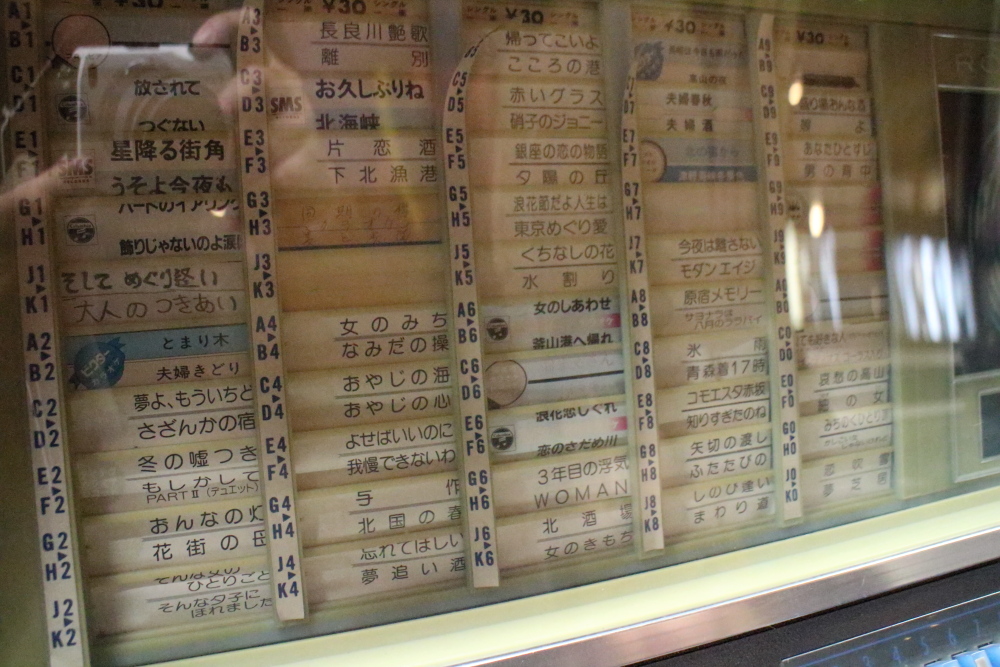 A1
B1
C1
D1
E1
F1
G1
H1
J1
K1
A2
B2
C2
D2
E2
F2
G2
H2
J2
K2
¥30
放されて
つぐない
星降る街角
うそよ今夜も
ハートのイアリング
飾りじゃないのよ涙
そして めぐり逢い
大人のつきあい
とまり木
夫婦きどり
夢よ、もういちど
さざんかの宿
冬の嘘つき
もしかして
PARTⅡ (デュエット)
おんなの灯
花街の母
ひとりごと
そんな夕子に
ほれました
A3
B3
C3
D3
E3
F3
G3
H3
J3
K3
A4
B4
C4
D4
E4
F4
G4
H4
J4
K4
¥30
長良川艶歌
離別
SMS
お久しぶりね
北海峡
片恋酒
下北漁港
女のみち
なみだの操
おやじの海
おやじの心
よせばいいのに
我慢できないわ
与作
北国の春
忘れてほしい
夢追い酒
C5
D5
E5
F5
G5
H5
J5
K5
A6
B6
C6
D6
E6
F6
G6
H6
J6
K6
¥30
帰ってこいよ
こころの港
赤いグラス
硝子のジョニー
銀座の恋の物語
夕陽の丘
浪花節だよ人生は
東京めぐり愛
くちなしの花
水割り
女のしあわせ
釜山港へ帰れ
浪花恋しぐれ
恋のさだめ川
3年目の浮気
WOMAN
北酒場
女のきもち
D7
E7
F7
G7
H7
J7
K7
A8
B8
C8
D8
E8
F8
G8
H8
J8
K8
¥30
夫婦春秋
夫婦酒
今夜は離さない
モダンエイジ
原宿メモリー
サヨナラは
八月のララバイ
氷雨
青森着17時
コモエスタ赤坂
知りすぎたのね
矢切の渡し
ふたたびの
しのび逢い
まわり道
A9
B9
C9
D9
E9
F9
G9
H9
J9
K9
A0
B0
C0
D0
E0
F0
G0
H0
J0
K0
¥30
あなたひとすじ
男の背中
ても好きな人
哀愁の高山
みちづくひとり
恋吹雪
夢芝居
4 5 6